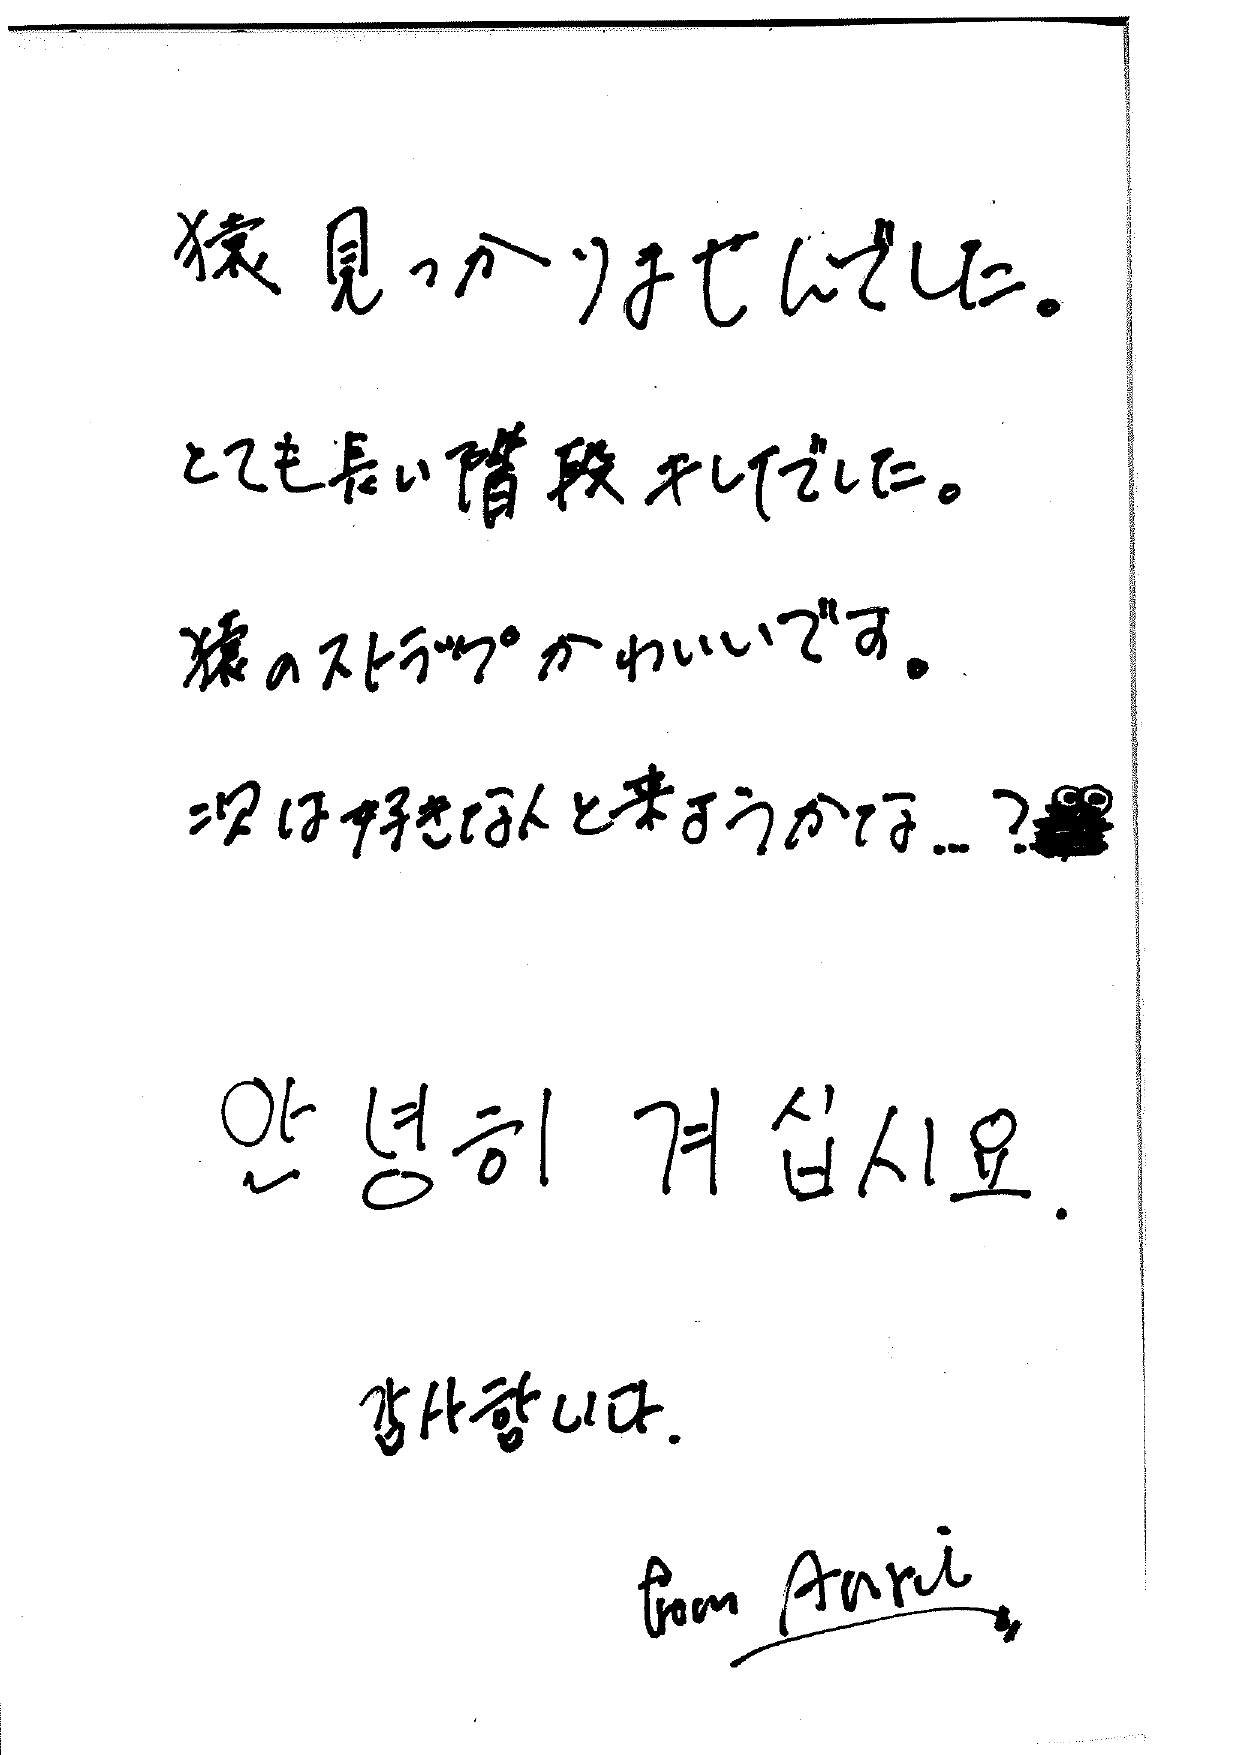 猿見つかりませんでした。
とても長い階段キレイでした。
猿のストラップかわいいです。
次は好きな人と来ようかな…?
안녕히 계십시요.
감사합니다.
from Anri